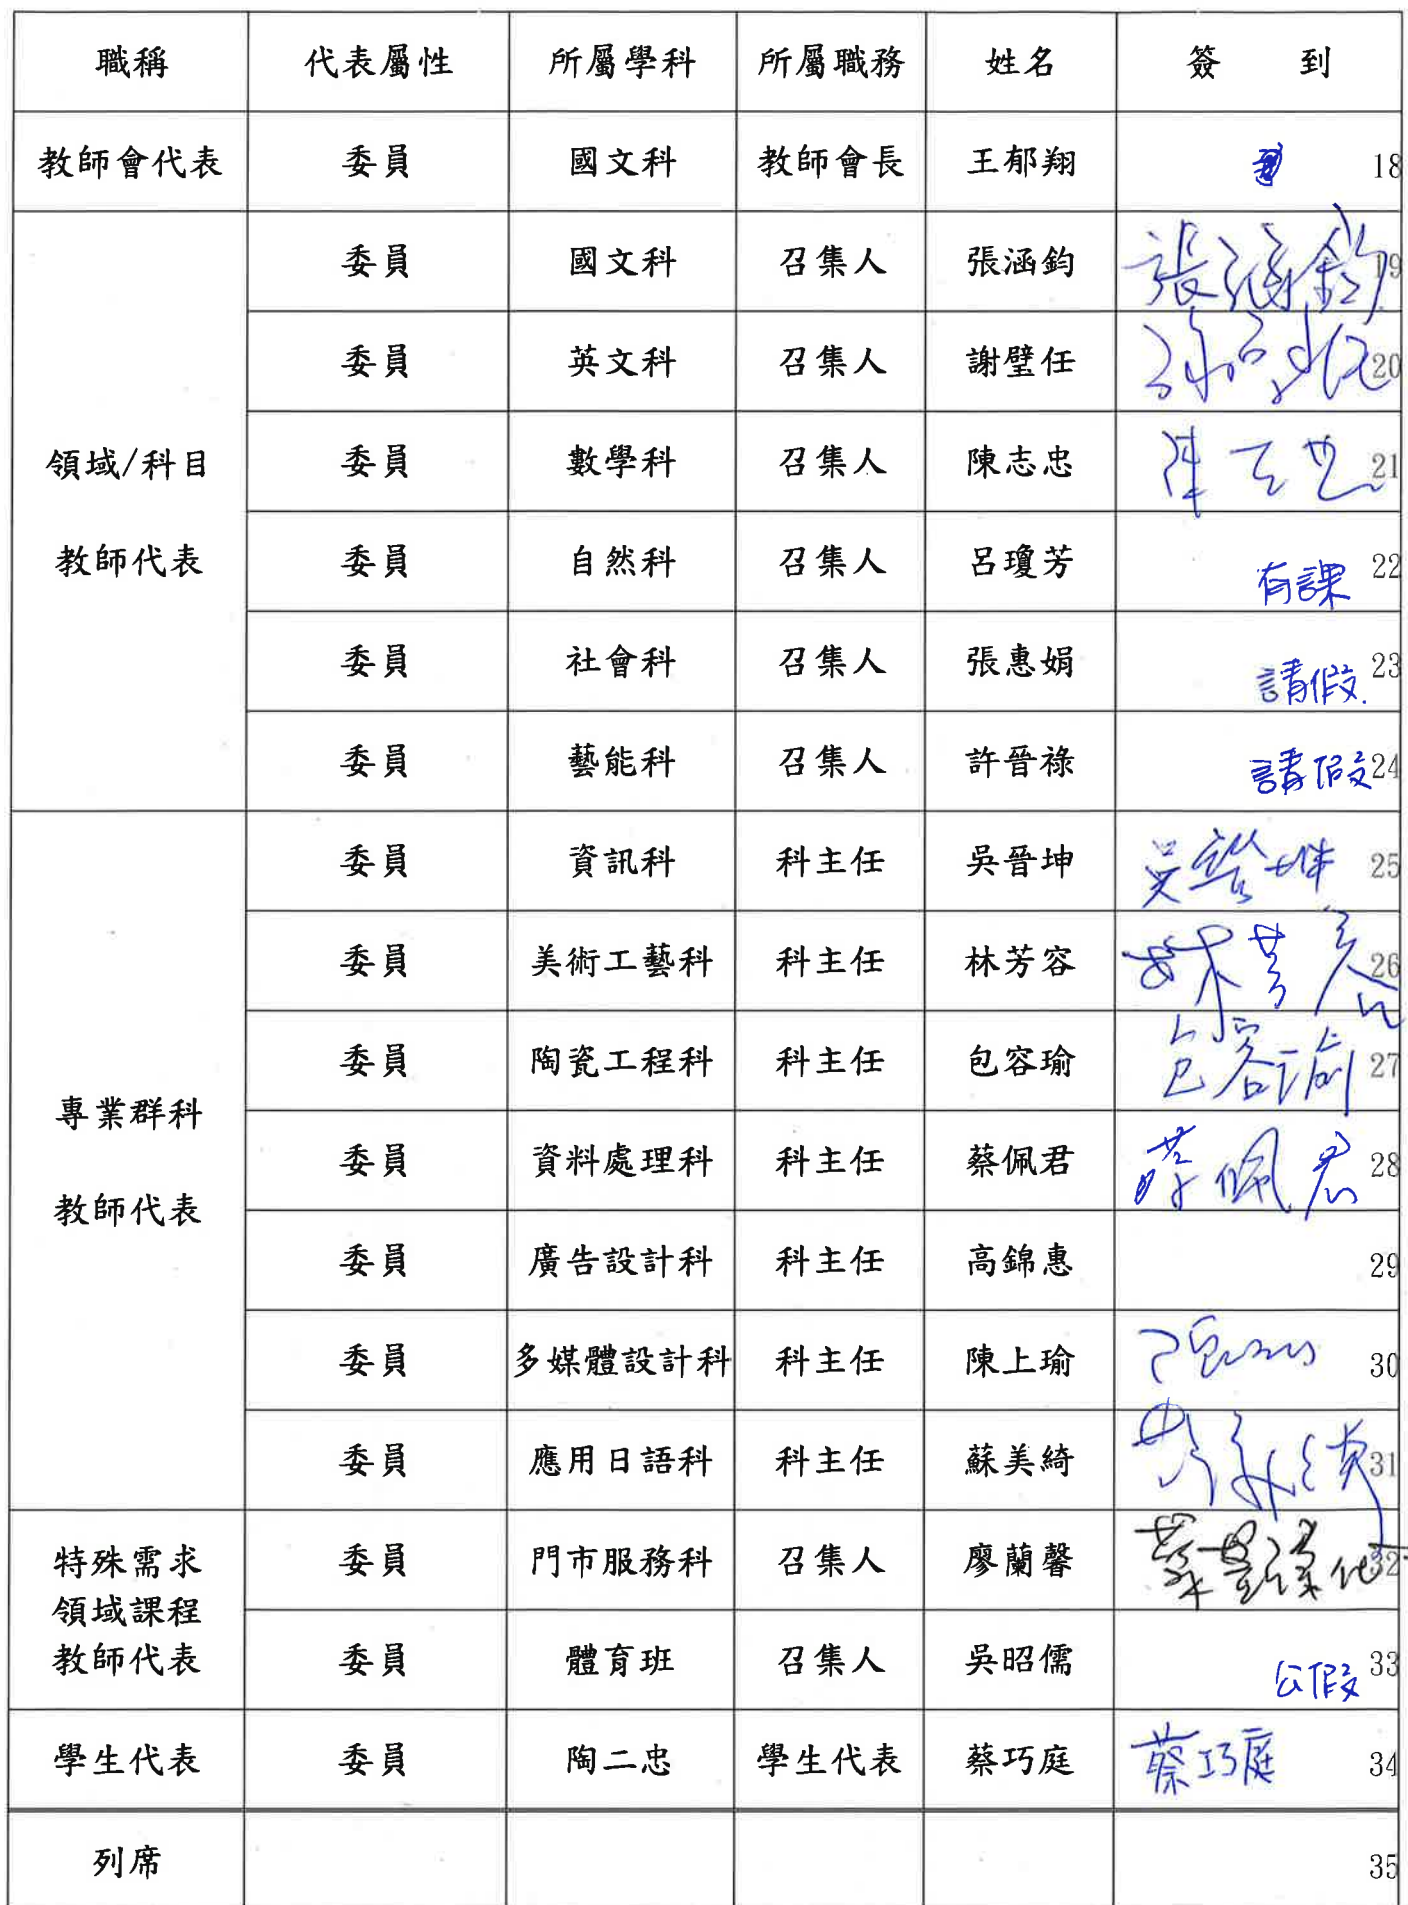 職稱 代表屬性 所屬學科 所屬職務 姓名 簽 到
教師會代表 委員 國文科 教師會長 王郁翔 18
領域/科目
教師代表
委員 國文科 召集人 張涵鈞 張涵鈞 19
委員 英文科 召集人 謝壁任 20
委員 數學科 召集人 陳志忠 陳志忠 21
委員 自然科 召集人 呂瓊芳 有課 22
委員 社會科 召集人 張惠娟 請假. 23
委員 藝能科 召集人 許晉祿 請假 24
專業群科
教師代表
委員 資訊科 科主任 吳晉坤 吳晉坤 25
委員 美術工藝科 科主任 林芳容 林芳容 26
委員 陶瓷工程科 科主任 包容瑜 包容瑜 27
委員 資料處理科 科主任 蔡佩君 蔡佩君 28
委員 廣告設計科 科主任 高錦惠 29
委員 多媒體設計科 科主任 陳上瑜 30
委員 應用日語科 科主任 蘇美綺 31
特殊需求
領域課程
教師代表
委員 門市服務科 召集人 廖蘭馨 32
委員 體育班 召集人 吳昭儒 公假 33
學生代表 委員 陶二忠 學生代表 蔡巧庭 蔡巧庭 34
列席 35